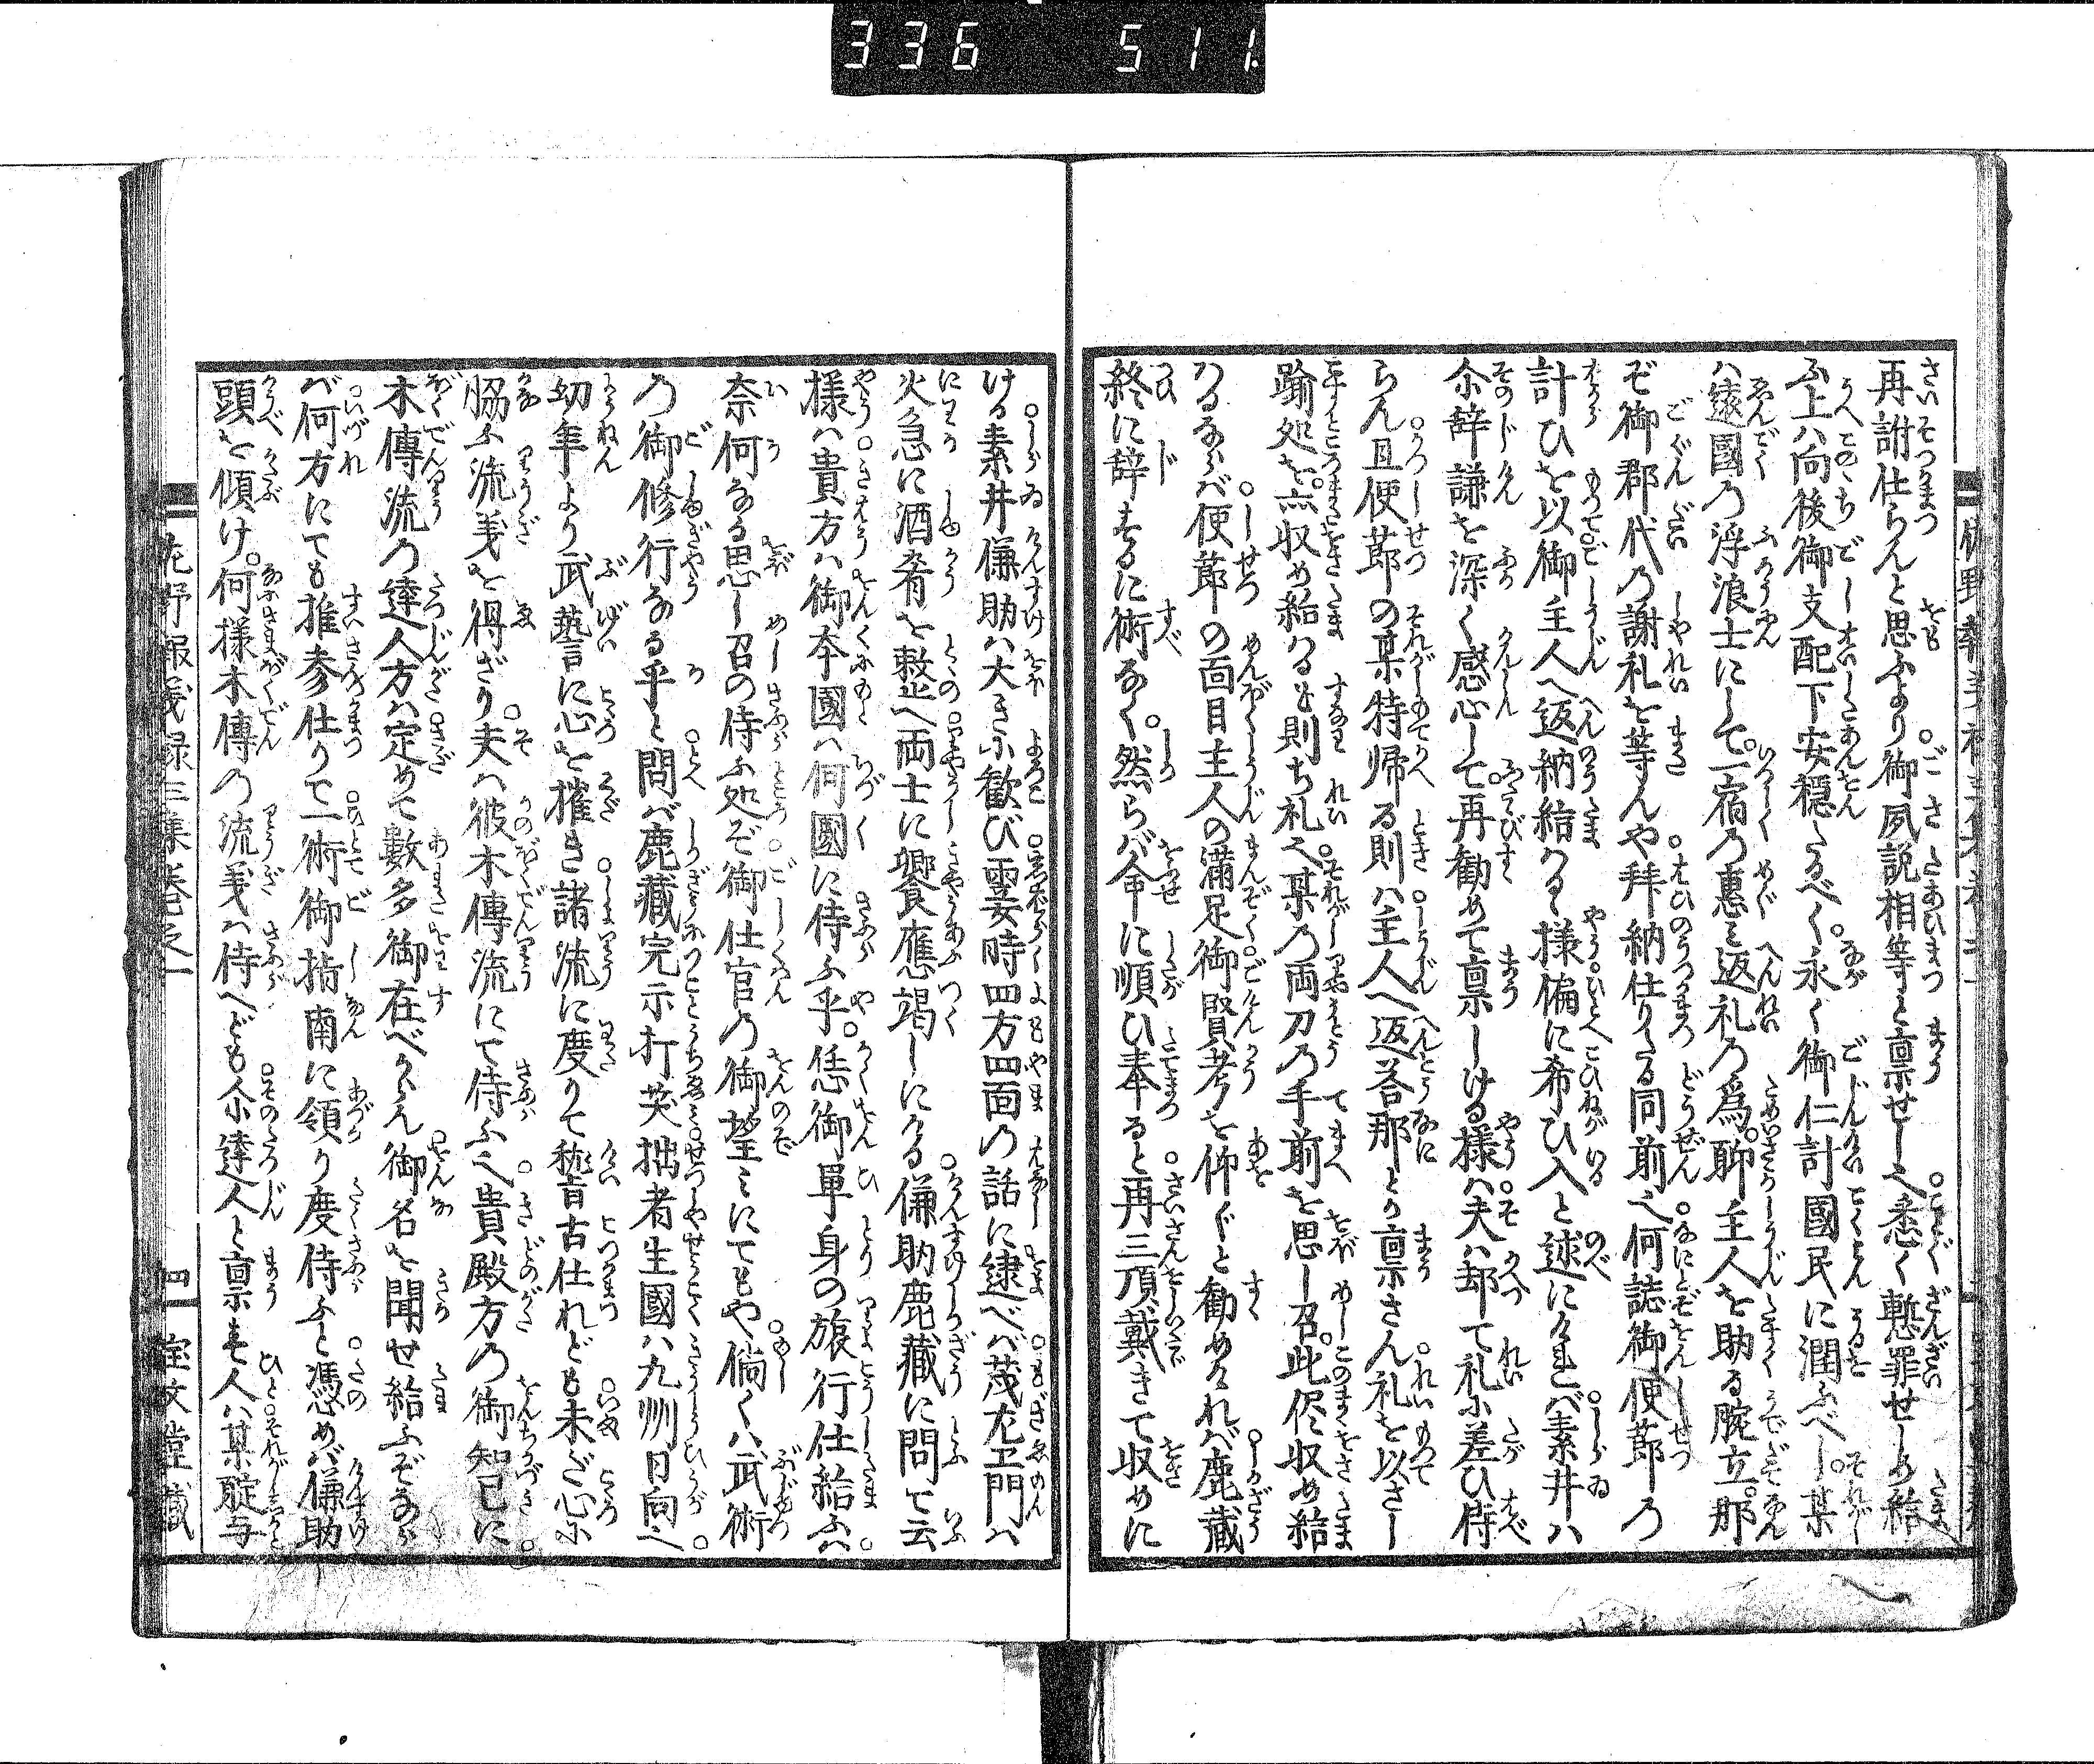 336 511
再詂仕らんと思ふより御夙説相等と禀せし之悉く慙罪せしめ給
ふ上ハ向後御支配下安穏たるべく永く御仁計國民に潤ふべし某
ハ遠國の浮浪士にして一宿の惠ミ返礼の為聊主人を助る腕立那
ぞ御郡代の謝礼を等んや拜納仕りたる同前之何誌御便莭ろ
計ひを以御主人へ返納給ハる様偏に希ひ入と述にけれバ素井ハ
尒辞謙を深く感心して再勧めて禀しける様ハ夫ハ却て礼尒差ひ侍
らん且便莭の某特帰る則ハ主人へ返荅那とか禀さん礼を以さし
踰処を亦収め給ハるを則ち礼之某の両刀の手前を思し召此侭収め給
ハるならバ便莭の面目主人の滿足御賢考を仰ぐと勧めけれバ鹿蔵
終に辞するに術なく然らバ命に順ひ奉ると再三頂戴きて収めに
ける素井傔助ハ大きに歓び霎時四方四面の話に逮べバ茂左エ門ハ
火急に酒肴を整へ両士に饗應竭しにける傔助鹿藏に問て云
様ハ貴方ハ御夲國ハ何國に侍ふ乎恁御單身の旅行仕給ふハ
奈何なる思し召の侍ふ処ぞ御仕官の御望ミにてもや倘くハ武術
の御修行なる乎と問バ鹿藏完尒打芺拙者生國ハ九州日向之
幼年より武藝に心を摧き諸流に度りて稽古仕れども未ざ心尒
脇ふ流義を得ざり夫ハ彼木傳流にて侍ふ之貴殿方の御知己に
木傳流の達人方ハ定めて數多御在べからん御名を聞せ給ふぞなら
バ何方にても推参仕りて一術御指南に領り度侍ふと憑めバ傔助
頭を傾け何様木傳の流義ハ侍へども尒達人と禀す人ハ某聢与
佐野報義録三集巻之一
四
宝文堂藏